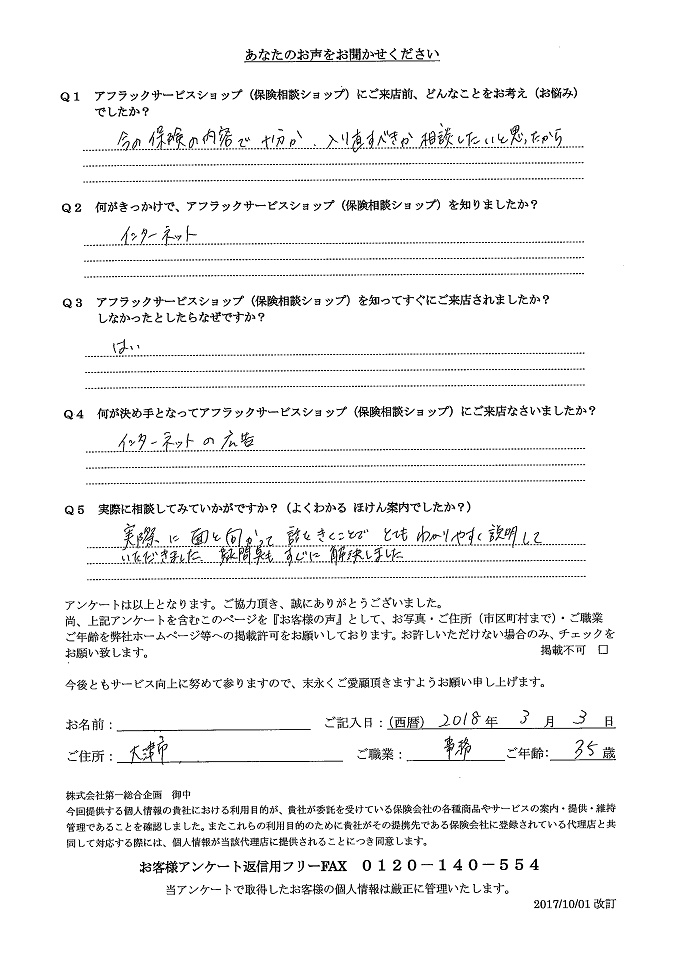 あなたのお声をお聞かせください
Q1 アフラックサービスショップ（保険相談ショップ）にご来店前、どんなことをお考え（お悩み）
でしたか？
今の保険の内容で十分か、入り直すべきか相談したいと思ったから
Q2 何がきっかけで、アフラックサービスショップ（保険相談ショップ）を知りましたか？
インターネット
Q3 アフラックサービスショップ（保険相談ショップ）を知ってすぐにご来店されましたか？
しなかったとしたらなぜですか？
はい
Q4 何が決め手となってアフラックサービスショップ（保険相談ショップ）にご来店なさいましたか？
インターネットの広告
Q5 実際に相談してみていかがですか？（よくわかる ほけん案内でしたか？）
実際に面と向かって話をきくことで とても わかりやすく説明して
いただきました 疑問点も すぐに 解決しました
アンケートは以上となります。ご協力頂き、誠にありがとうございました。
尚、上記アンケートを含むこのページを『お客様の声』として、お写真・ご住所（市区町村まで）・ご職業
ご年齢を弊社ホームページ等への掲載許可をお願いしております。お許しいただけない場合のみ、チェックを
お願い致します。 掲載不可 □
今後ともサービス向上に努めて参りますので、末永くご愛顧頂きますようお願い申し上げます。
お名前： ご記入日：（西暦） 2018 年 3 月 3 日
ご住所： 大津市 ご職業： 事務 ご年齢： 35 歳
株式会社第一総合企画 御中
今回提供する個人情報の貴社における利用目的が、貴社が委託を受けている保険会社の各種商品やサービスの案内・提供・維持
管理であることを確認しました。またこれらの利用目的のために貴社がその提携先である保険会社に登録されている代理店と共
同して対応する際には、個人情報が当該代理店に提供されることにつき同意します。
お客様アンケート返信用フリーFAX 0120－140－554
当アンケートで取得したお客様の個人情報は厳正に管理いたします。
2017/10/01 改訂